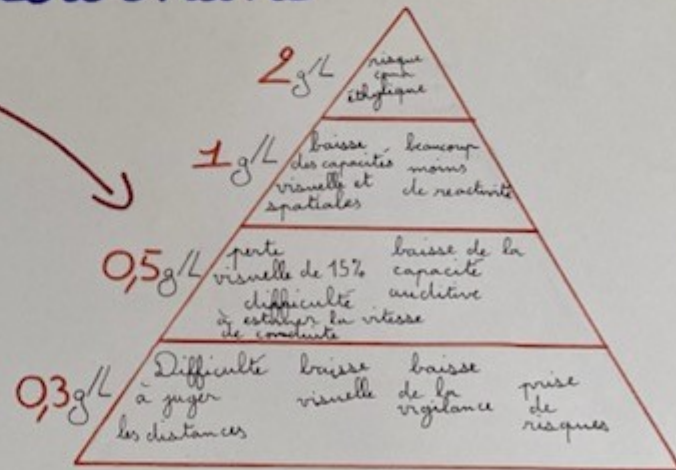 2 g/L
risque
coma
éthylique
1 g/L
baisse
des capacités
visuelle et
spatiales
beaucoup
moins
de reactivité
0,5 g/L
perte
visuelle de 15%
difficulté
à estimer la vitesse
de conduite
baisse de la
capacité
auditive
0,3 g/L
Difficulté
à juger
les distances
baisse
visuelle
baisse
de la
vigilance
prise
de
risques